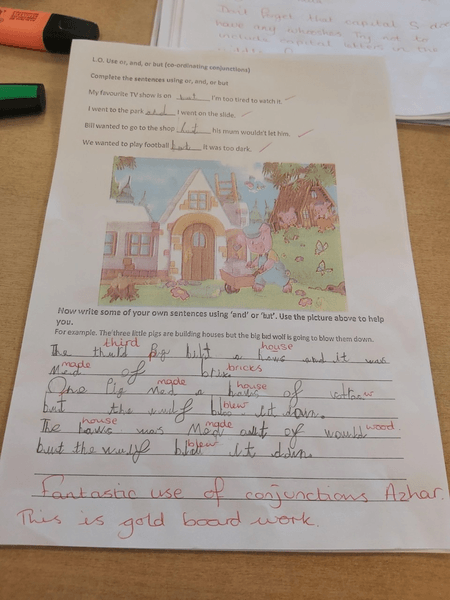 Don't forget that capital S
have any whiskers Try not to
include capital letters in the
L.O. Use or, and, or but (co-ordinating conjunctions)
Complete the sentences using or, and, or but
My favourite TV show is on but I'm too tired to watch it
I went to the park and I went on the slide.
Bill wanted to go to the shop but his mum wouldn't let him.
We wanted to play football but it was too dark.
Now write some of your own sentences using 'and' or 'but'. Use the picture above to help
you.
For example. The three little pigs are building houses but the big bad wolf is going to blow them down.
third house
The pig bilt a haws and it was
made bricks
med of brix
made house
One Pig med a haws of straw
blew
but the wulf bloo it down.
house made wood
The haws was med out of would
blew
but the wulf it down.
Fantastic use of conjunctions Azhar.
This is gold board work.